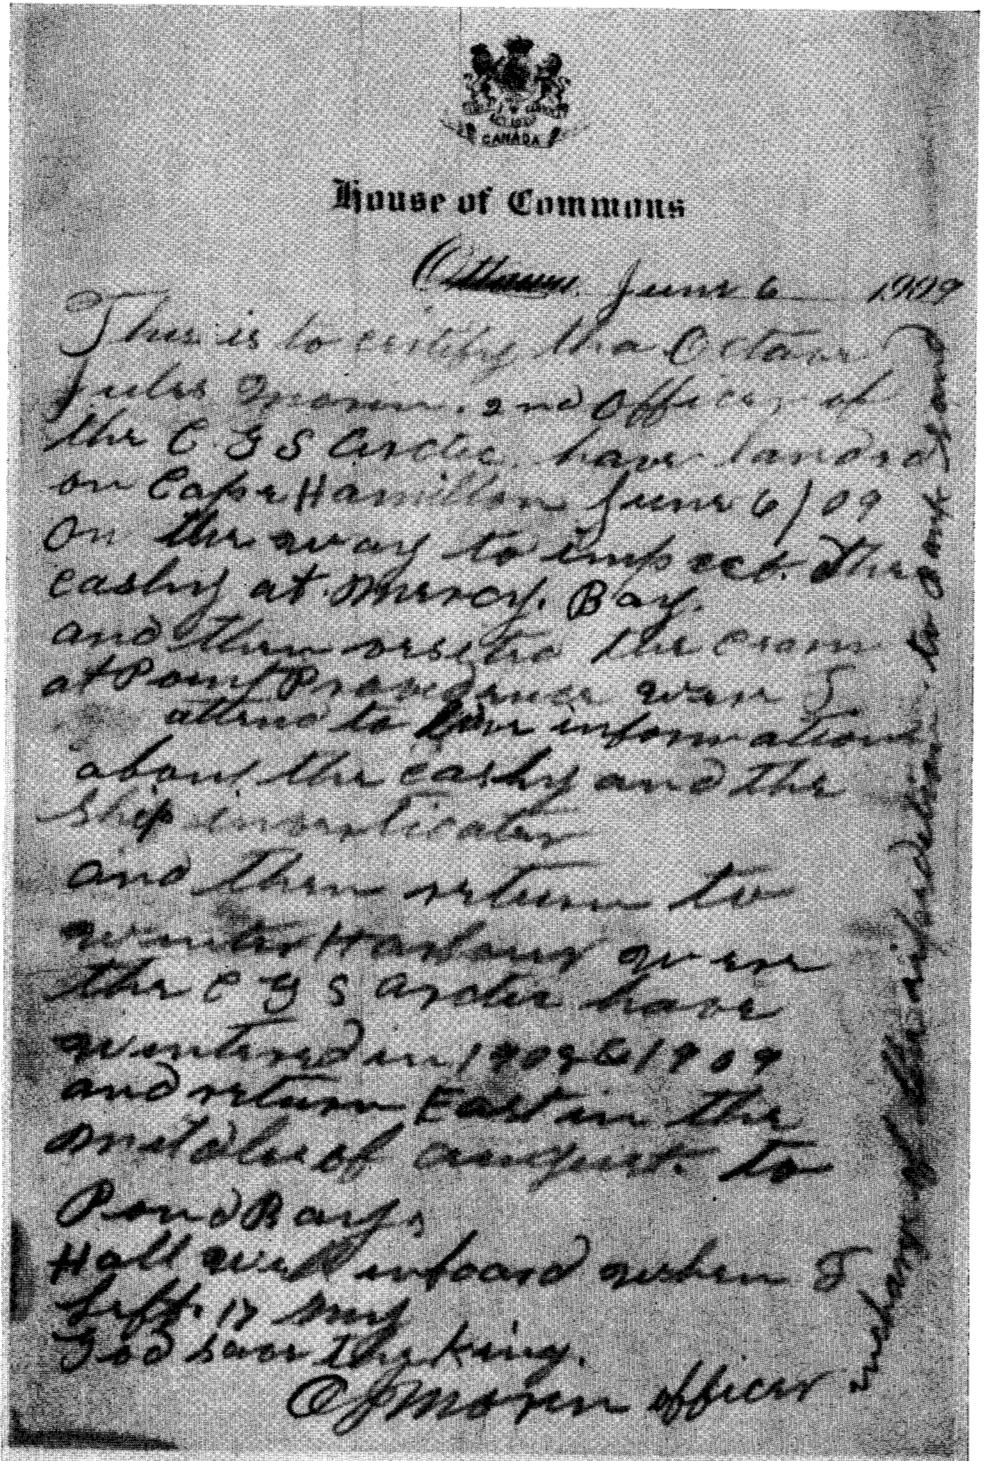 CANADA
House of Commons
Ottawa. June 6 1909
This is to certify tha Octave
Jules Morin. 2nd Officer of
the C G S Arctic have landed
on Cape Hamilton June 6/09
on the way to inspect the
cashy at Mercy. Bay.
and then
at Point Providence were I
attend to information
about the cashy and the
Ship investicater
and then return to
winter Harbour were
the C G S Arctic have
wintered in 1909
and return East in the
middle of august. to
Pond Bay,
Hall well inboard when I
left. 17 my
God save the King.
O J Morin officer
of to and found